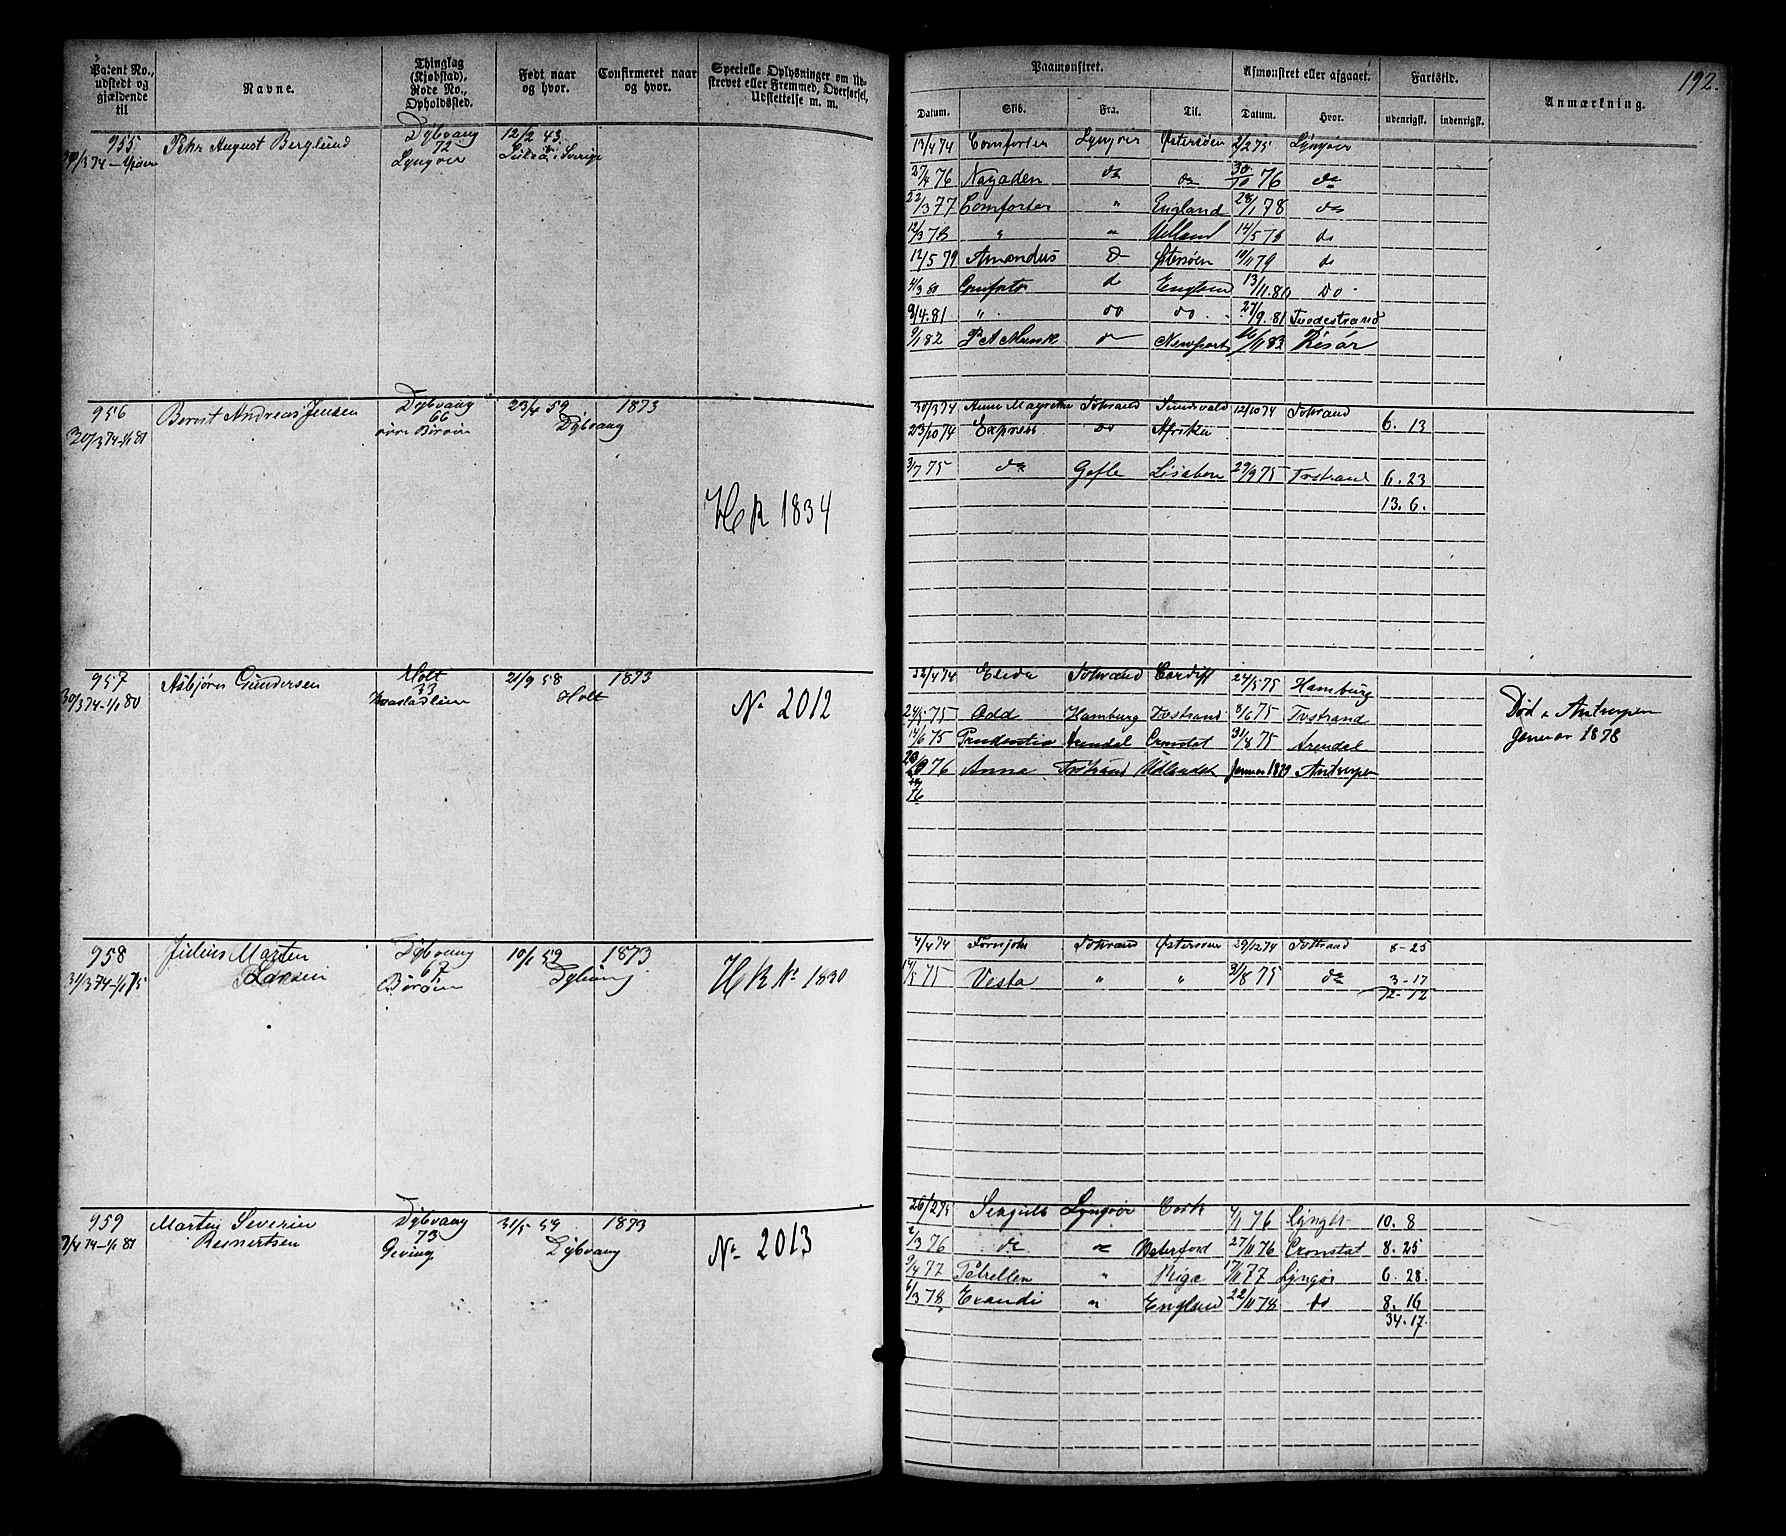 192.
Patent No., udstedt og gjældende til
Navne.
Thinglag (Kjøbstad), Rode No., Opholdssted.
Født naar og hvor.
Confirmeret naar og hvor.
Specielle Oplysninger om Udskrevet eller Fremmed, Overførsel, Udslettelse m. m.
Paamønstret.
Afmønstret eller afgaaet.
Fartstid.
Anmærkning.
Datum.
Skib.
Fra.
Til.
Datum.
Hvor.
udenrigsk.
indenrigsk.
955
Pehr August Berglund
Dybvaag
72
Lyngøer
12/2 43.
Luleå i Sverige
13/4 74 Comforter Lyngøer Østersøen 2/2 75 Lyngøer
27/4 76 Najaden do do 30/10 76 do
22/3 77 Comforter " England 28/1 78 do
12/3 78 " " Udland 14/5 78 do
12/5 79 Amandus do Østersøen 10/11 79 do
4/3 80 Comforter do England 13/11.80 Do
9/4.81 " do do. 27/9.81 Tvedestrand
9/1 82 P A Munk do Newport 16/11 83 Risør
956
30/3 74-1/1 81
Bernt Andreas Jensen
Dybvaag
66
øvre Børøen
23/4 59
Dybvaag
1873
H R 1834
30/3 74 Anne Magrethe Tvstrand Sundsvald 12/10 74 Tvstrand 6. 13
23/10 74 Express do Afrika
3/7 75 do Gefle Lisabon 29/9 75 Tvstrand 6. 23
13. 6.
957
30/3 74-1/1 80
Asbjørn Gundersen
Holt
33
21/9 58
Holt
1873
No 2012
22/4 74 Elida Tvstrand Cardiff 24/5 75 Hamburg
24/5 75 Odd Hamburg Tvstrand 8/6 75 Tvstrand
14/6 75 Prudentia Arendal Cronstat 31/8 75 Arendal
76 Anna Tvstrand Udlandet Januar 1879 Antverpen
Død i Antverpen
Januar 1878
958
31/3 74-1/1 75
Julius Marten
Larsen
Dybvaag
67
Børøen
10/1 59
Dybvaag
1873
H R No 1830
4/4 74 Fornjoht Tvstrand Østersøen 29/12 74 Tvstrand 8-25
14/5 75 Vesta " " 31/8 75 do 3-17
12-12
959
7/4 74-1/1 81
Marten Severin
Reinertsen
Dybvaag
73
Geving
31/5 59
Dybvaag
1873
No 2013
26/2 75 Seagull Lyngøer Cork 4/1 76 Lyngør 10. 8
2/3 76 do do Waterford 27/11 76 Cronstat 8. 25
9/4 77 Petrellen " Riga 17/11 77 Lyngør 6. 28.
6/3 78 Exandi " England 22/11 78 do 8. 16
34.17.